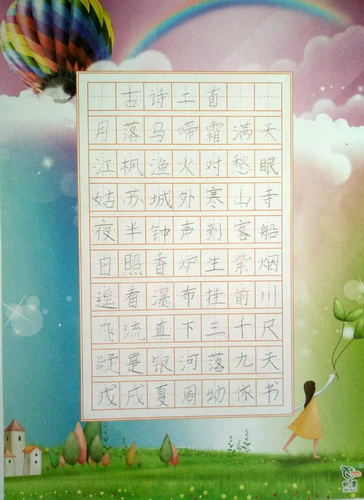 古诗二首
月落乌啼霜满天
江枫渔火对愁眠
姑苏城外寒山寺
夜半钟声到客船
日照香炉生紫烟
遥看瀑布挂前川
飞流直下三千尺
疑是银河落九天
戊戌夏周幼依书